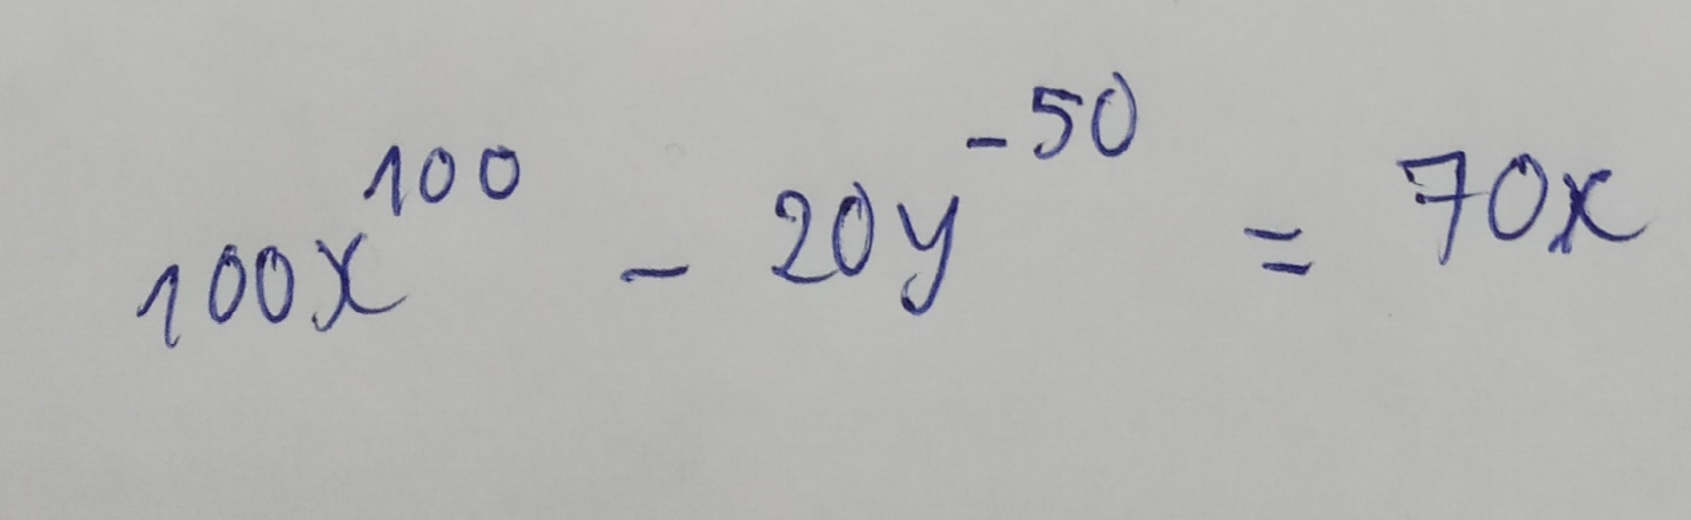 100x¹⁰⁰ - 20y⁻⁵⁰ = 70x